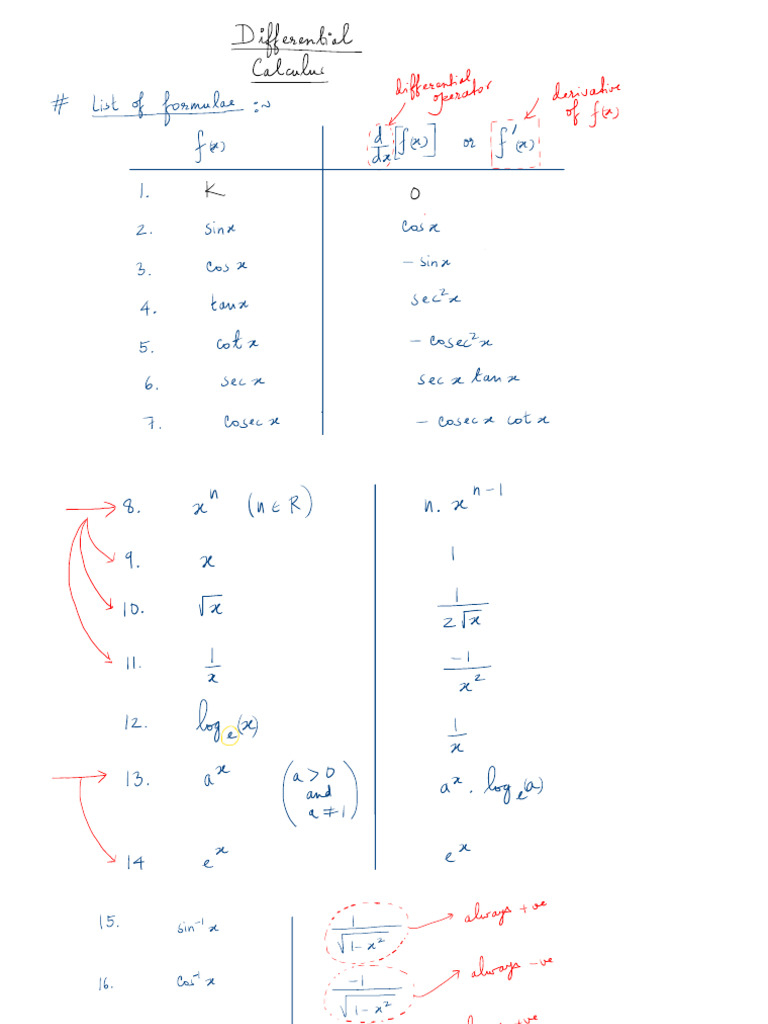 Differential
Calculus
# List of formulae :~
differential operator
derivative of f(x)
f(x) d/dx [f(x)] or f'(x)
1. K 0
2. sinx cosx
3. cosx -sinx
4. tanx sec²x
5. cotx -cosec²x
6. secx secx tanx
7. cosecx -cosecx cotx
8. xⁿ (n∈R) n.xⁿ⁻¹
9. x 1
10. √x 1/(2√x)
11. 1/x -1/x²
12. logₑ(x) 1/x
13. aˣ (a>0 and a≠1) aˣ.logₑ(a)
14 eˣ eˣ
15. sin⁻¹x 1/√(1-x²) always +ve
16. cos⁻¹x -1/√(1-x²) always -ve